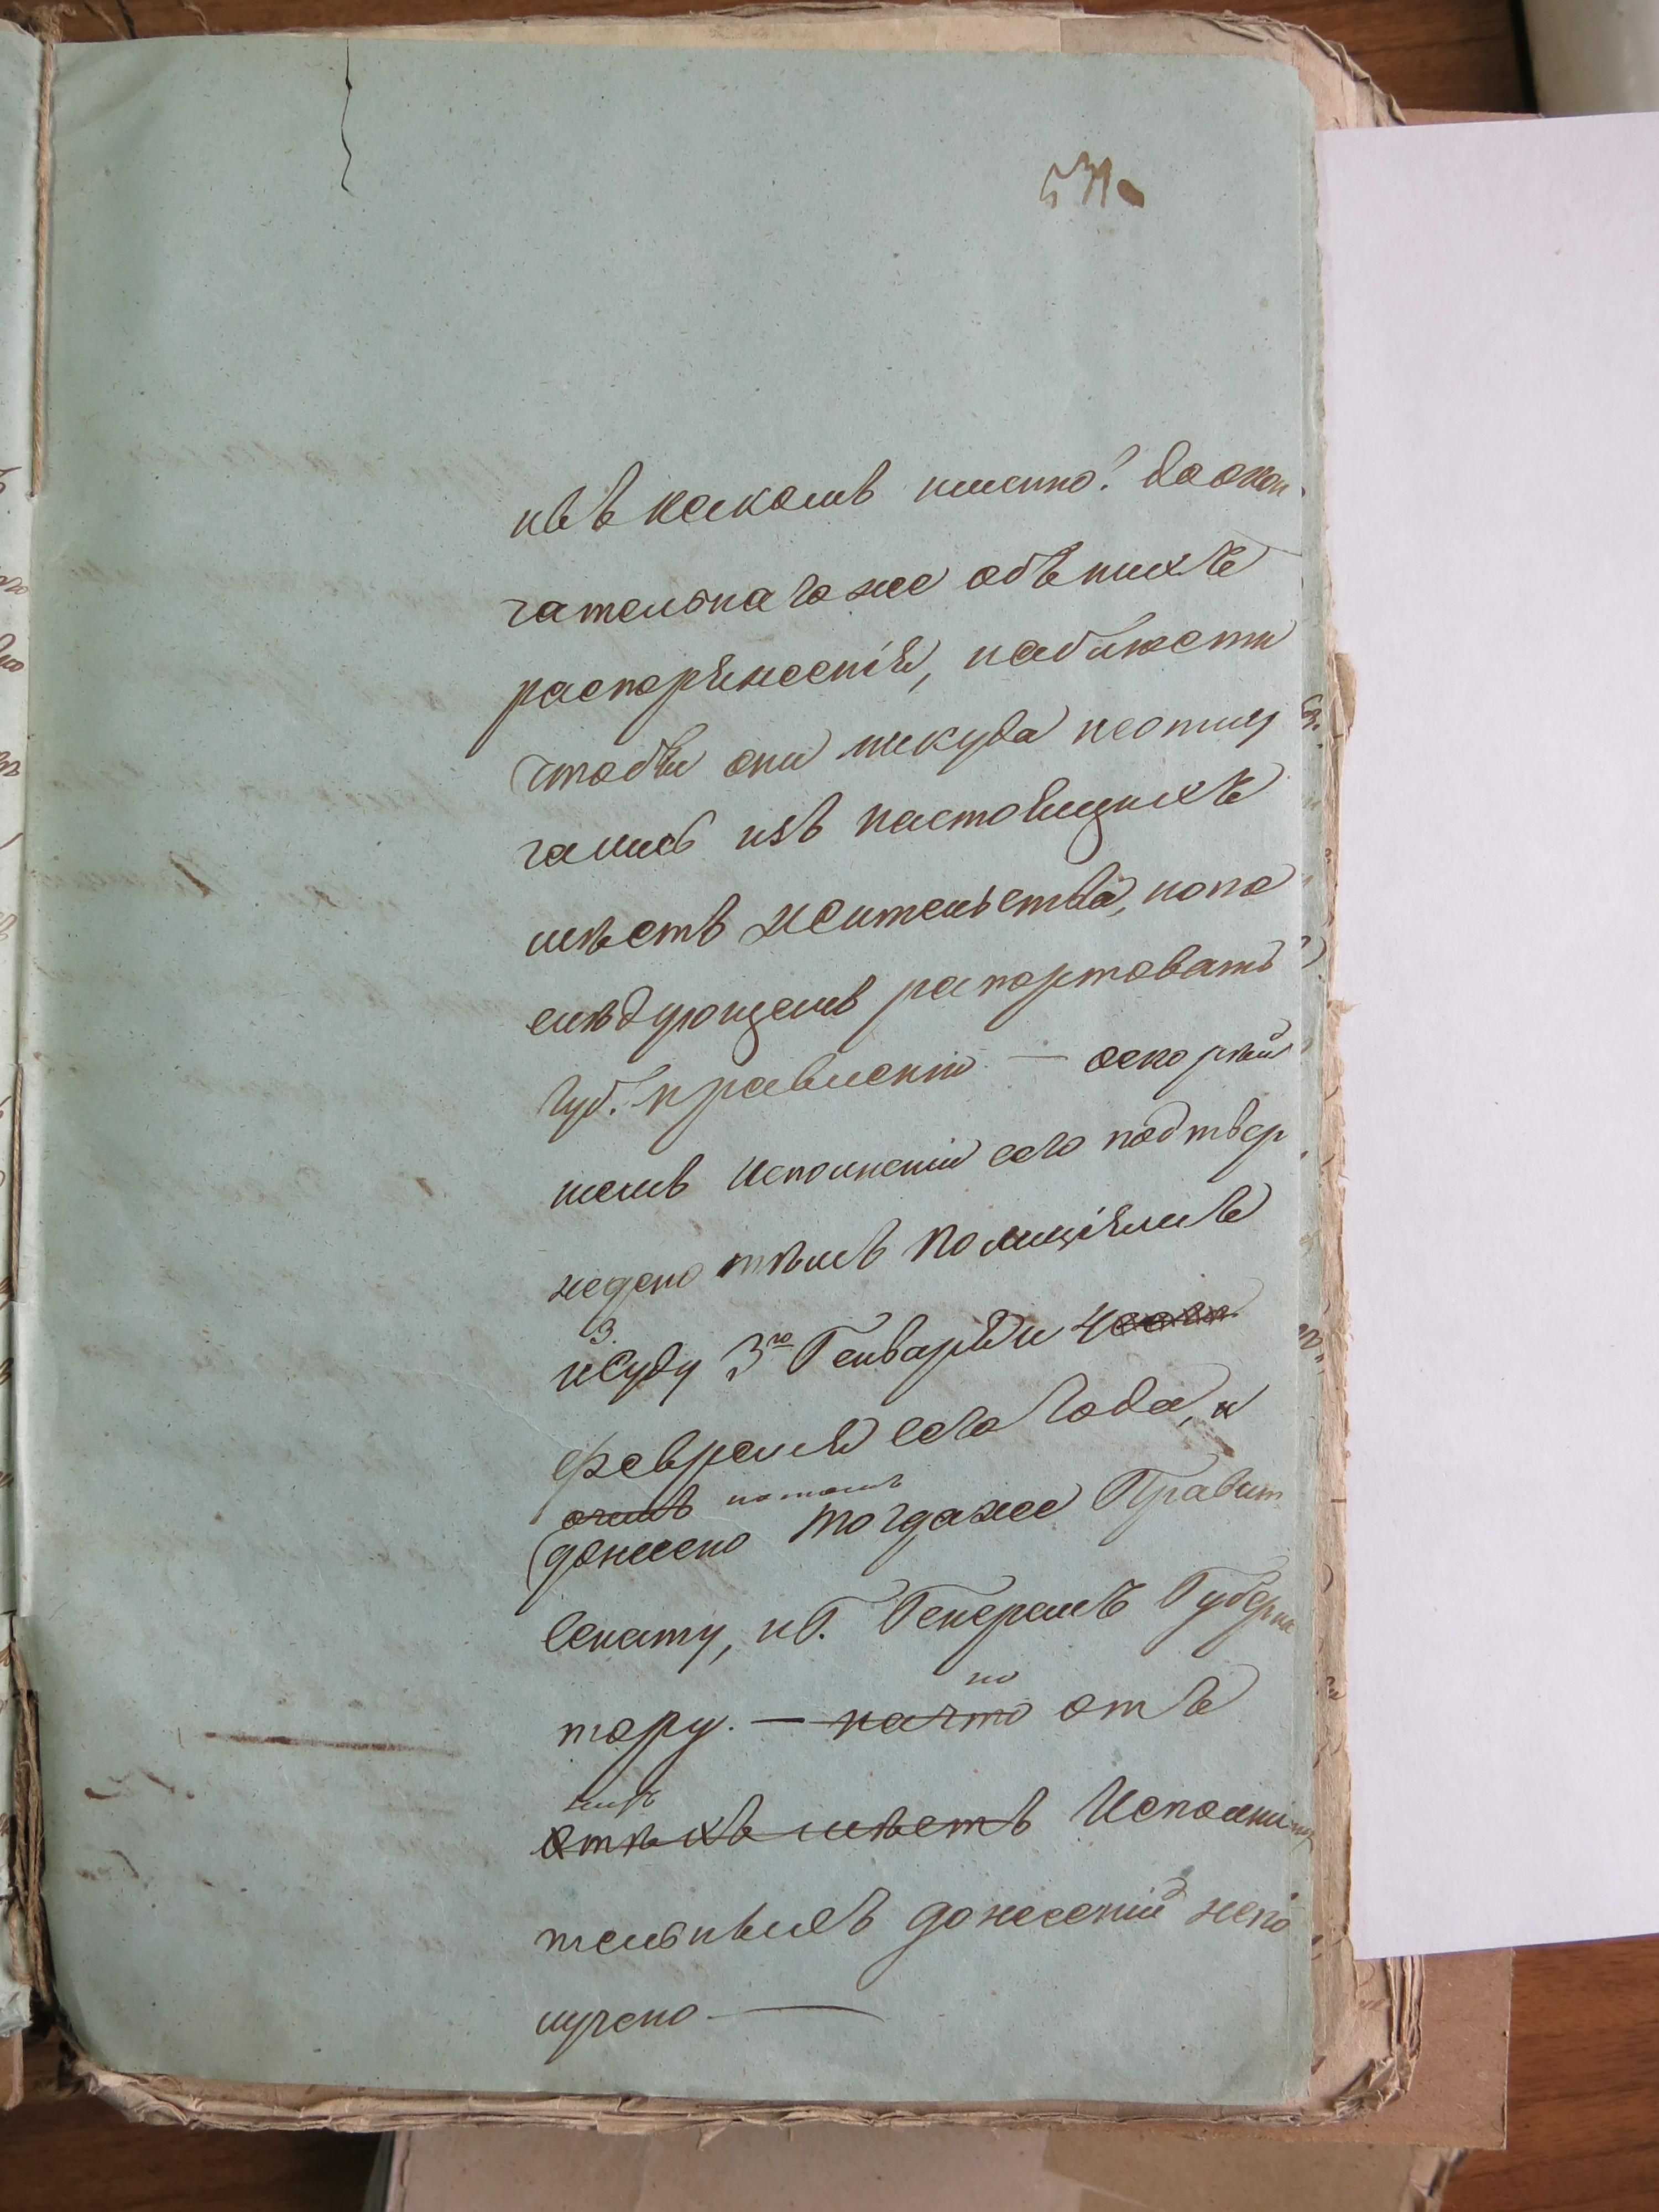 531.
ивъ какомъ имянно? До окон
чательнагоже объ нихъ
распоряженія, наблюсти
чтобы они никуда неотлу
чались изъ настоящихъ
мѣстъ жительства, ичто
слѣдующемъ рапортовать
Губ. правленію — оскорѣй
шемъ Исполненіи сего подтвер
ждено тѣмъ Полиціямъ
3.
исуду 3го Генваря и 4
февраля сего года, и
очемъ потомъ
донесено тогдаже Правит
Сенату, иГ. Генералъ Губерна
но
тору. — начто отъ
нихъ
отъ тѣхъ мѣстъ Исполни
тельныхъ донесеній непо
лучено —